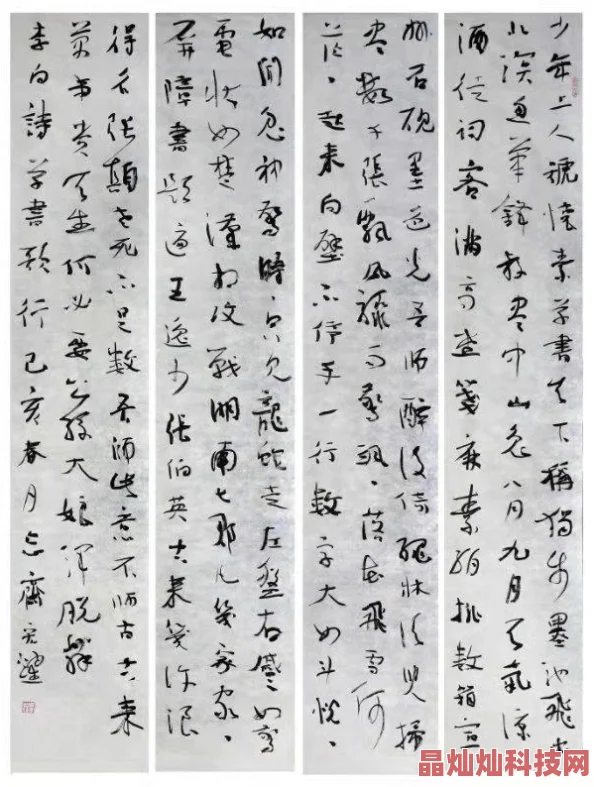 少年上人號懷素草書天下稱獨步墨池飛出
北溟魚筆鋒殺盡中山兔八月九月天氣涼
酒徒詞客滿高堂箋麻素絹排數箱宣
州石硯墨色光吾師醉後倚繩床須臾掃
盡數千張飄風驟雨驚颯〻落花飛雪何
茫〻起來向壁不停手一行數字大如斗怳〻
如聞鬼神驚時〻只見龍蛇走左盤右蹙如驚
電狀如楚漢相攻戰湖南七郡凡幾家家〻
屏障書題遍王逸少張伯英古來幾許浪
得名張顛老死不足數吾師此意不師古古來
萬事貴天生何必要公孫大娘渾脫舞
李白詩草書歌行己亥春月忘齋
晶灿灿科技网